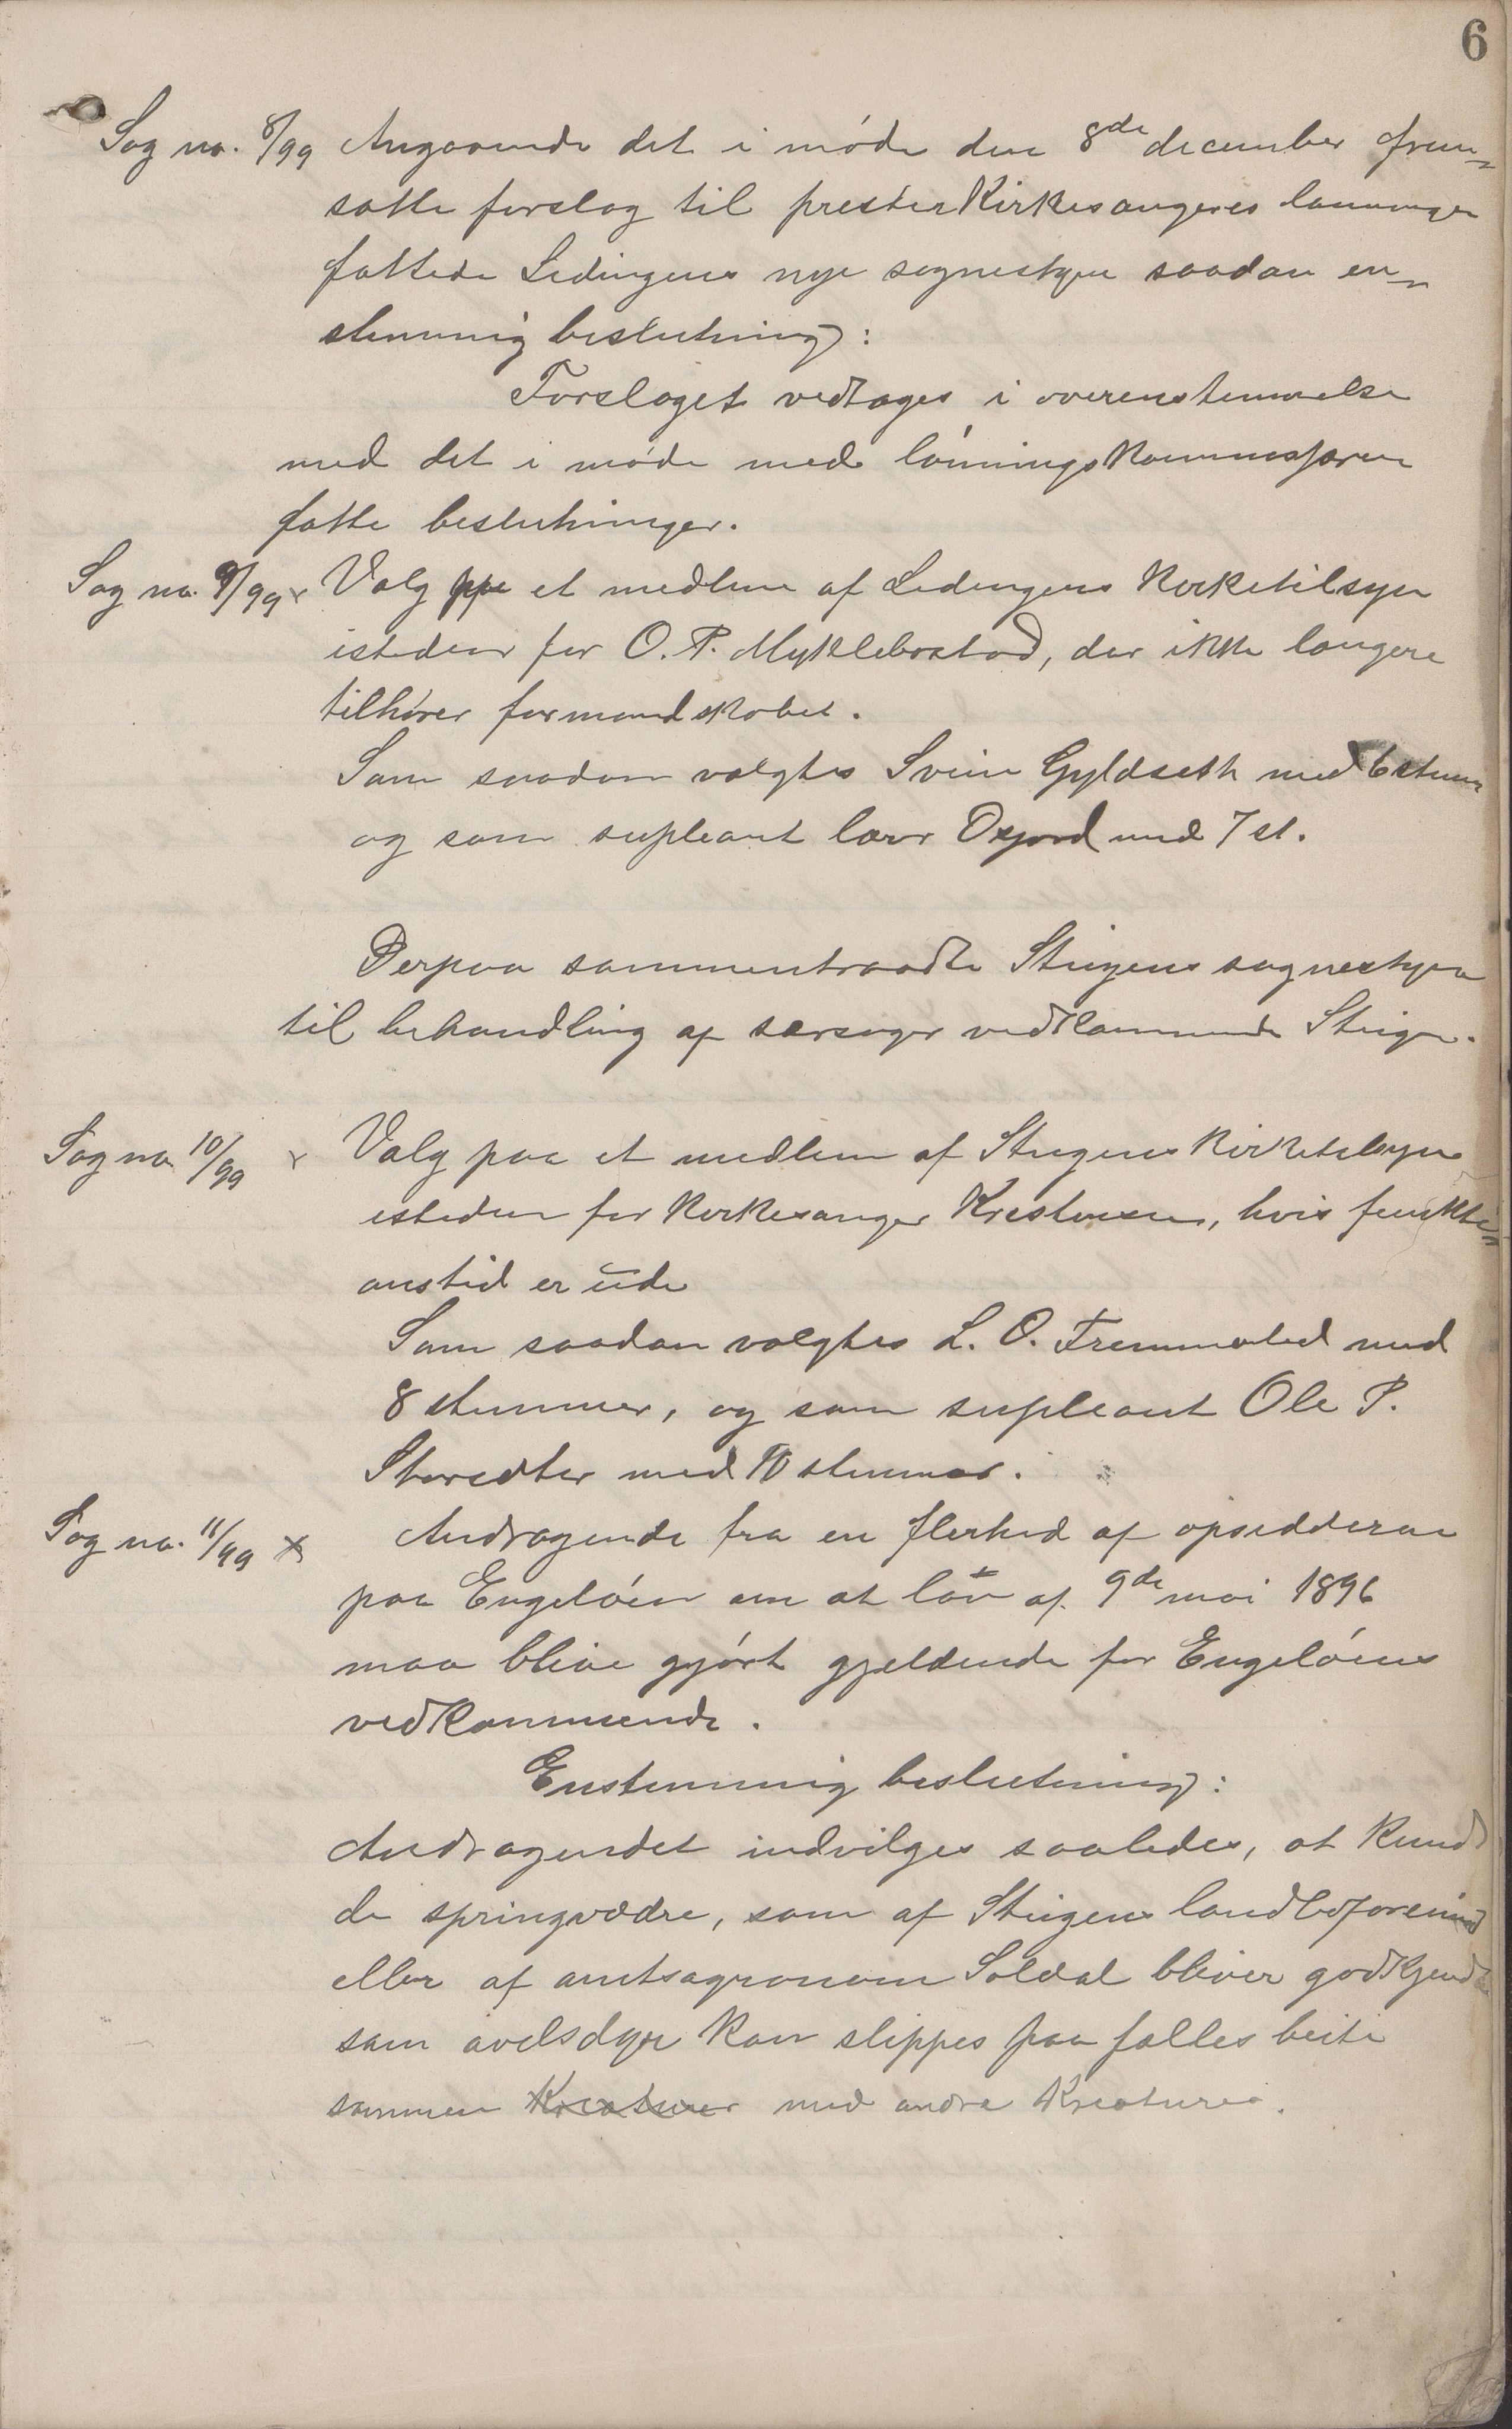 6
Sag no. 8/99 Angaaende det i møde den 8de december frem-
satte forslag til prester Kirkesangeres lønninger
fattede Ledingens nye sognestyre saadan en-
stemmig beslutning:
Forslaget vedtages i overenstemmelse
med det i møde med lønningskommissæren
fatte beslutninger.
Sag no. 9/99 x Valg paa et medlem af Ledingens Kirketilsyn
isteden for O. P. Myklebostad, der ikke længere
tilhører formandskabet.
Som saadan valgtes Svein Gyldseth med 6 stem
og som supleant lærer Oxjord med 7 st.
Derpaa sammentraadte Steigens sognestyre
til behandling af særsager vedkommende Steigen.
Sag no. 10/99 x Valg paa et medlem af Steigens Kirketilsyn
isteden for Kirkesanger Kristensen, hvis funkti-
onstid er ude
Som saadan valgtes L. O. Fremmerlid med
8 stemmer, og som supleant Ole P.
med 10 stemmer.
Sag no. 11/99 x Andragende fra en flerhed af opsidderne
paa Engeløen om at lov af 9de mai 1896
maa blive gjørt gjeldende for Engeløens
vedkommende.
Enstemmig beslutning:
Andragendet indvilges saaledes, at kund
de springvædre, som af Steigens landboforening
eller af amtsagronom Soldal bliver godkjendt
som avelsdyr kan slippes paa fælles beite
sammen Kreaturer med andre Kreaturer.